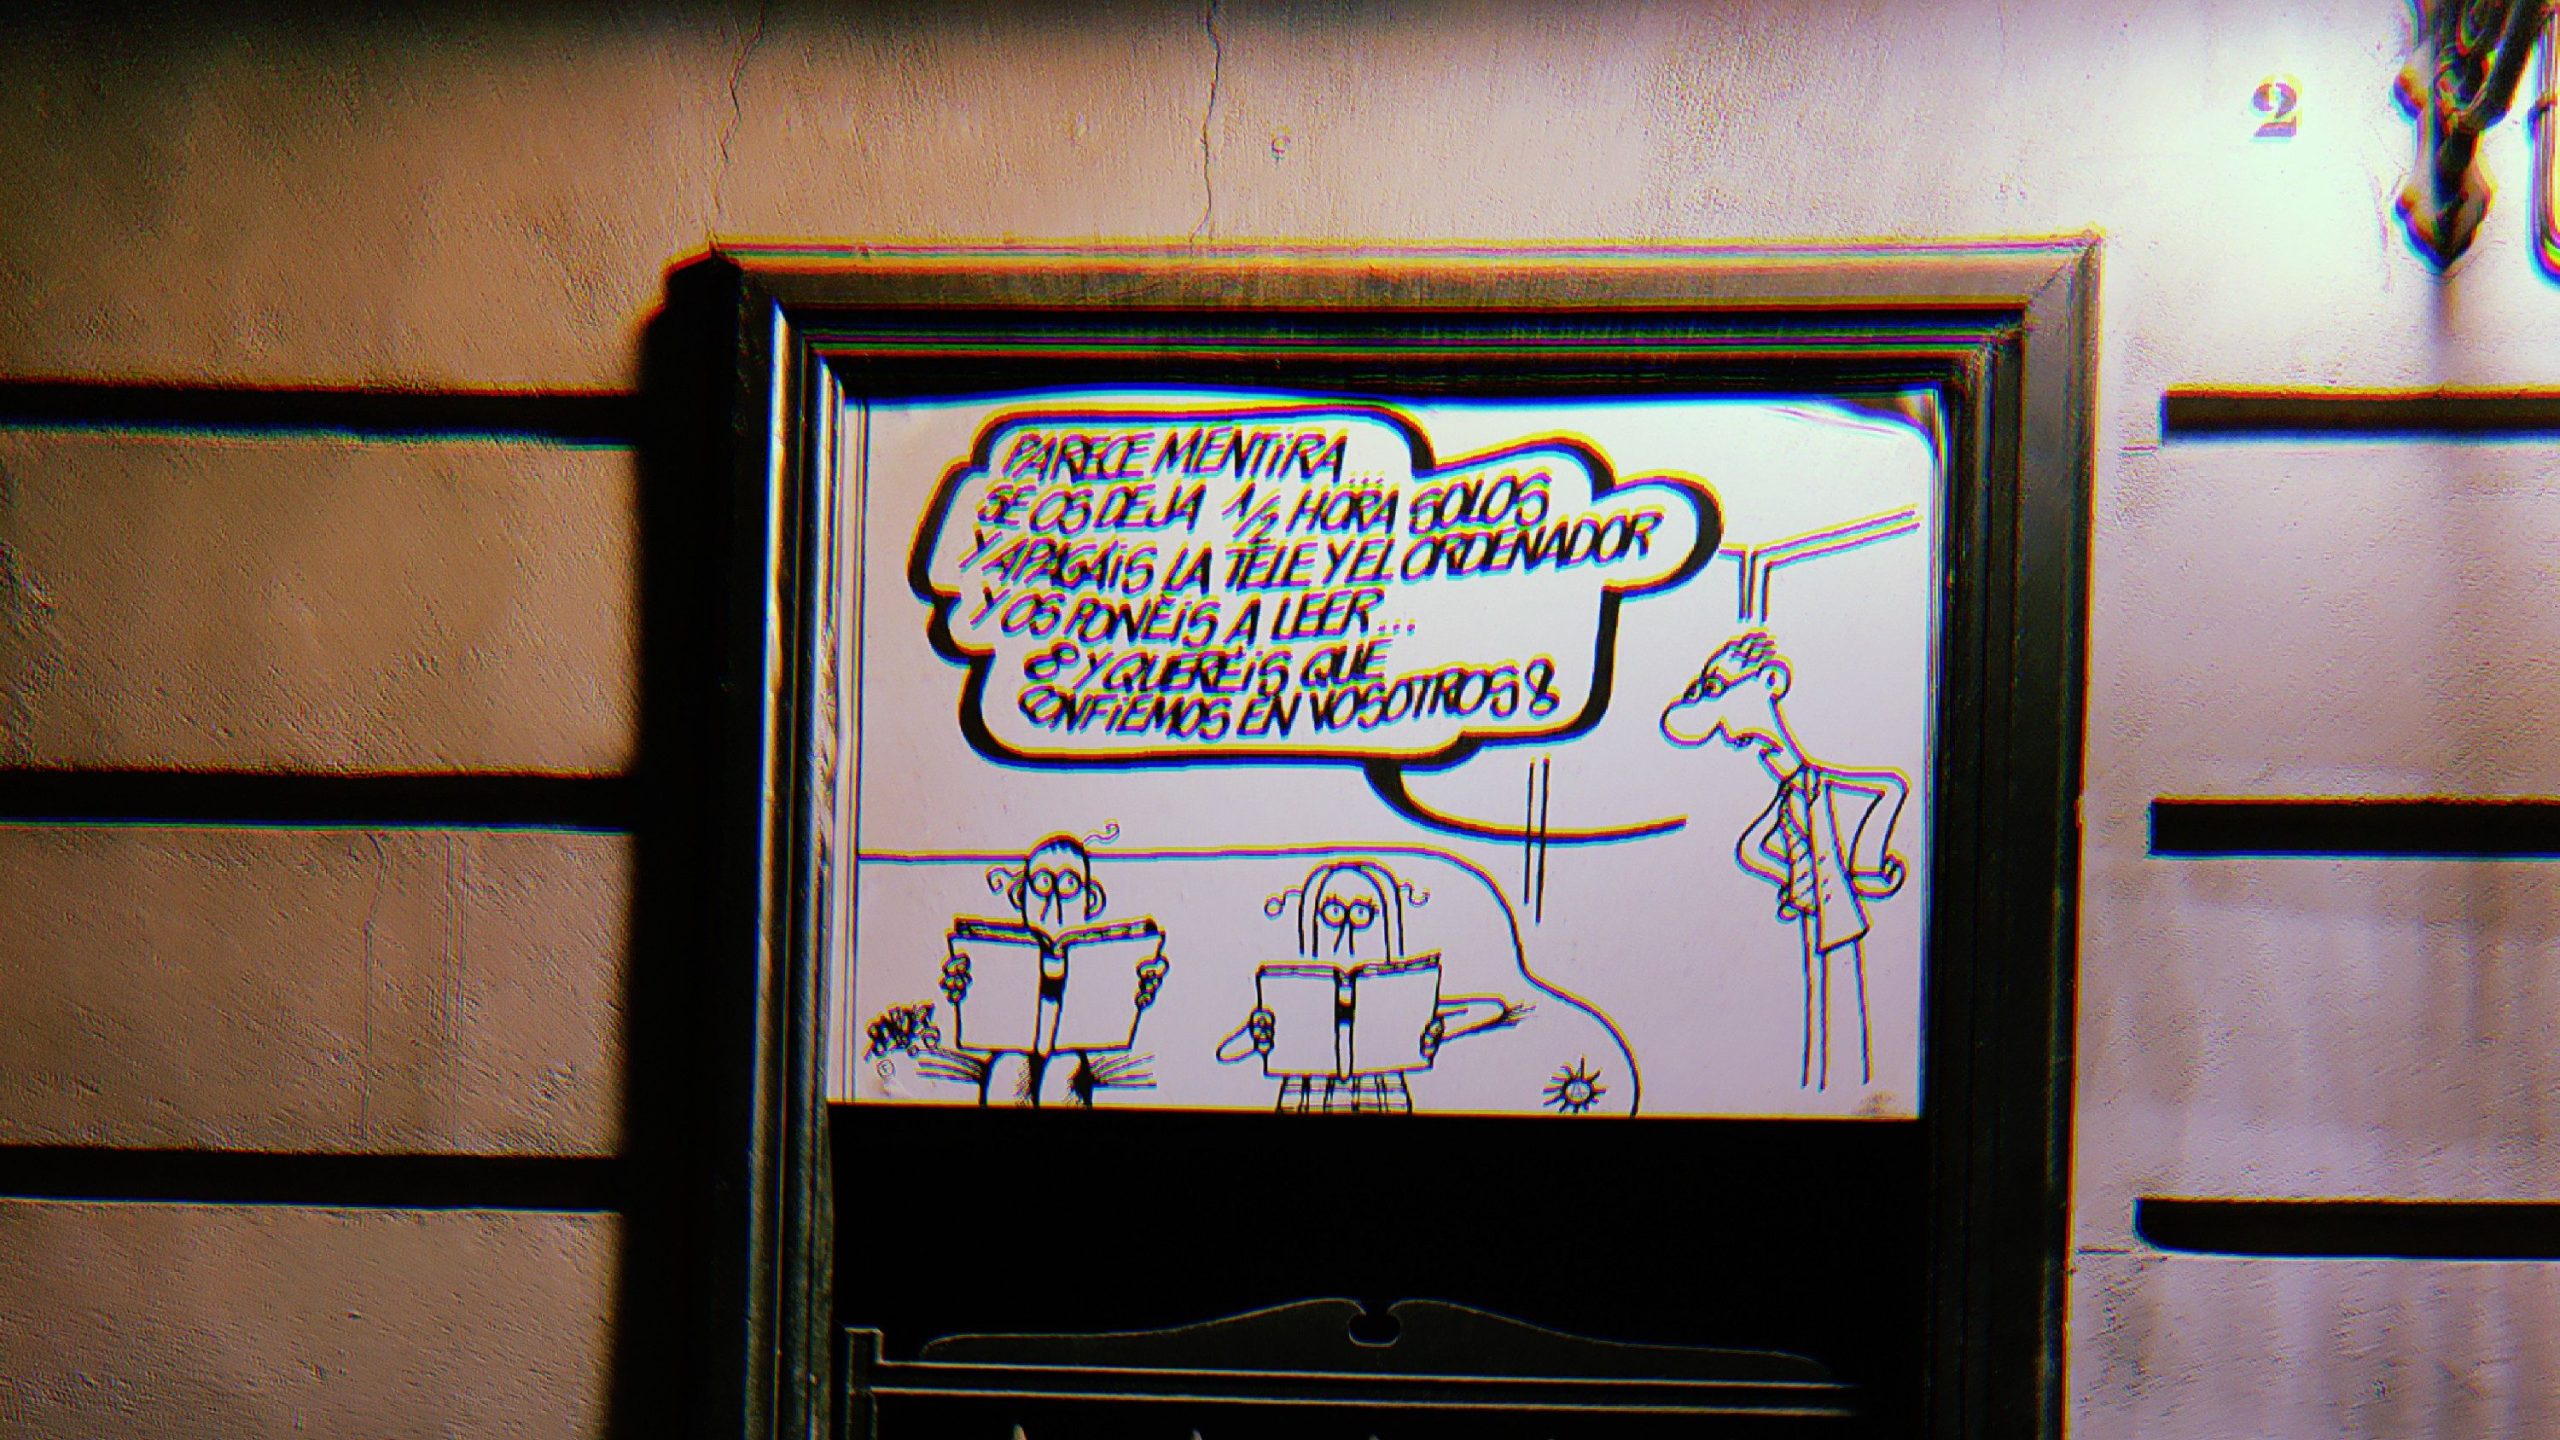 2
PARECE MENTIRA...
SE OS DEJA 1/2 HORA SOLOS
Y APAGÁIS LA TELE Y EL ORDENADOR
Y OS PONÉIS A LEER...
¿Y QUERÉIS QUE
CONFIEMOS EN VOSOTROS?
FORGES
©